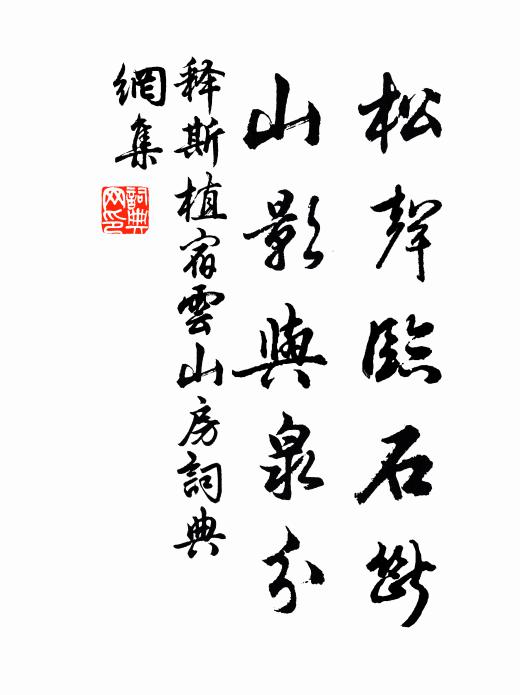 松聲臨石斷
山影與泉分
释斯植宿雲山房詞典
網集
詞典網印